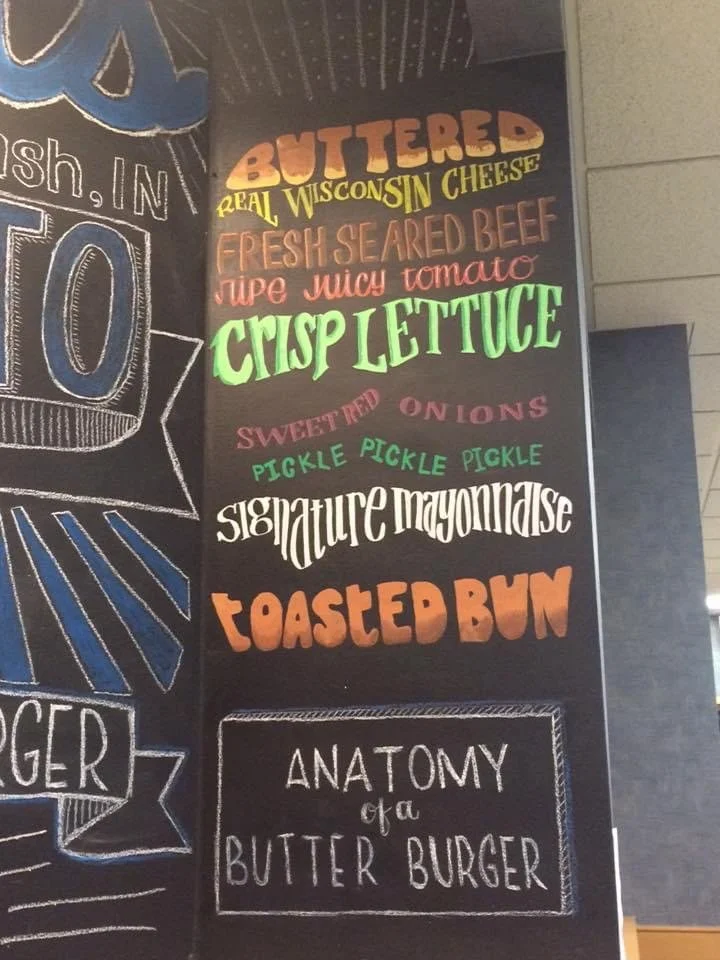 BUTTERED
REAL WISCONSIN CHEESE
FRESH SEARED BEEF
ripe juicy tomato
CRISP LETTUCE
SWEET RED ONIONS
PICKLE PICKLE PICKLE
signature mayonnaise
toASted BUN
ANATOMY
of a
BUTTER BURGER
, IN
TO